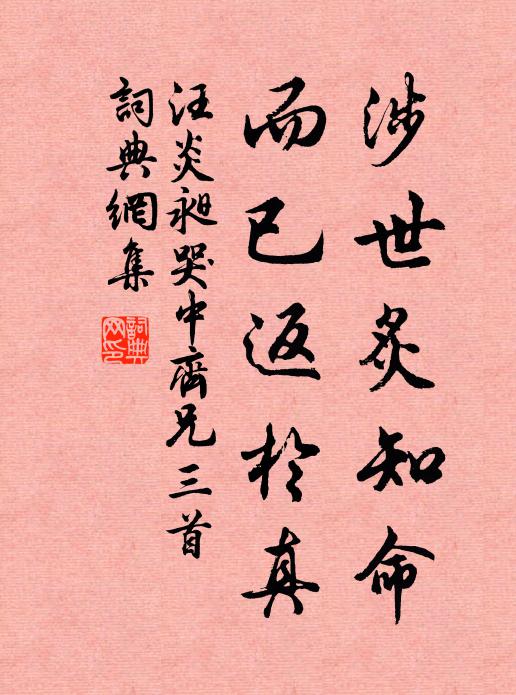 涉世炙知命
而已返於真
汪炎昶哭中齋兄三首
詞典網集
詞典网印